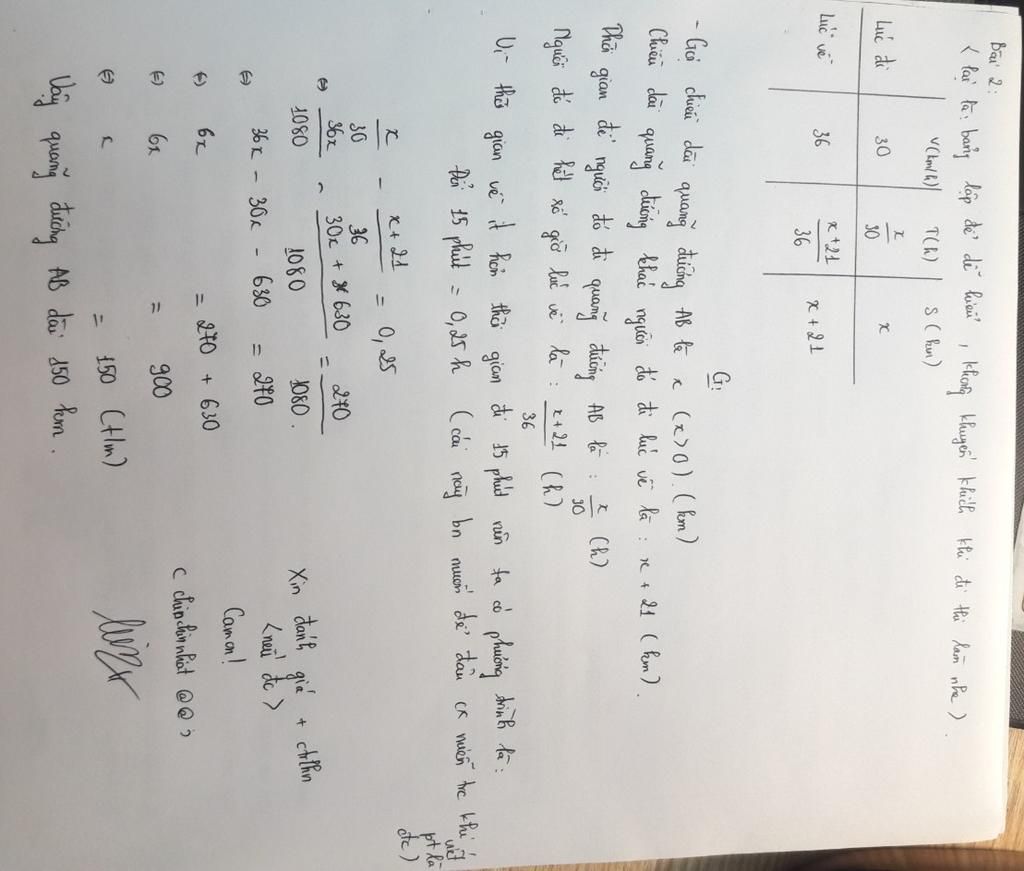 Bài 2:
< lại là: bảng lập để dễ hiểu, không khuyến khích khi đi thi làm nha )
V(km/h) T(h) S(km)
Lúc đi 30 x/30 x
Lúc về 36 x+21/36 x+21
Gi
- Gọi chiều dài quãng đường AB là x (x>0). (km)
Chiều dài quãng đường khác người đó đi lúc về là: x + 21 (km).
Thời gian để người đó đi quãng đường AB là: x/30 (h)
Người đó đi hết số giờ lúc về là: x+21/36 (h)
Vì thời gian về ít hơn thời gian đi 15 phút nên ta có phương trình là:
Đổi 15 phút = 0,25h (cái này bn muốn để đâu cx miễn trc khi viết pt là đc)
x/30 - x+21/36 = 0,25
⇔ 36x/1080 - 30x + 630/1080 = 270/1080.
⇔ 36x - 30x - 630 = 270
⇔ 6x = 270 + 630
⇔ 6x = 900
⇔ x = 150 (t/m)
Vậy quãng đường AB dài 150 km.
Xin đánh giá + ctrlhn
<nếu đc>
Camon!
( chinchinnhat @@ )